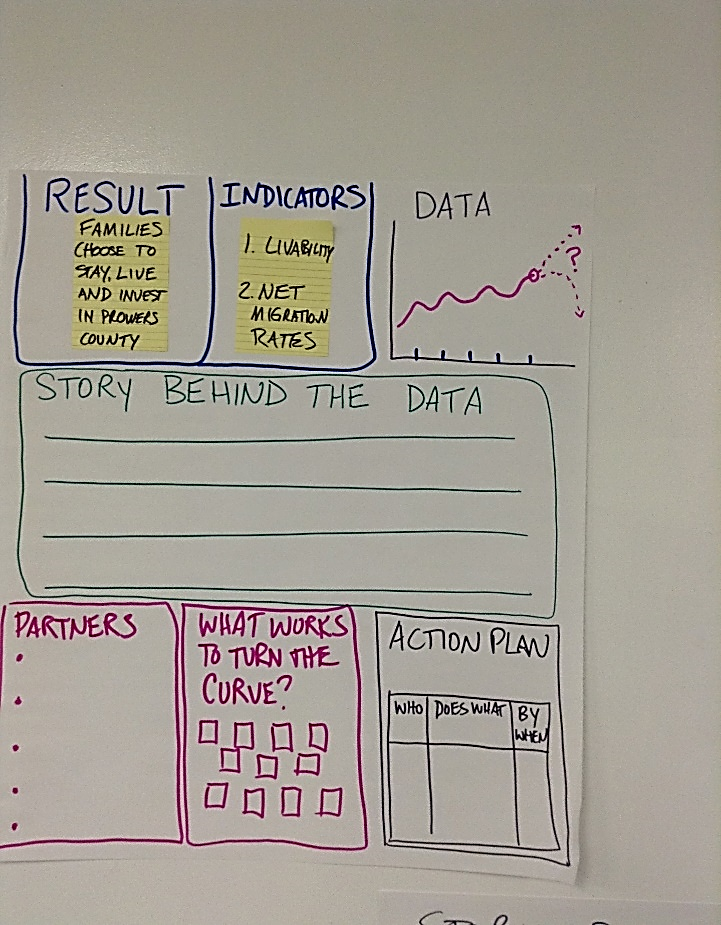 RESULT
FAMILIES
CHOOSE TO
STAY, LIVE
AND INVEST
IN PROWERS
COUNTY
INDICATORS
1. LIVABILITY
2. NET
MIGRATION
RATES
DATA
?
STORY BEHIND THE DATA
PARTNERS
WHAT WORKS
TO TURN THE
CURVE?
ACTION PLAN
WHO DOES WHAT BY
WHEN